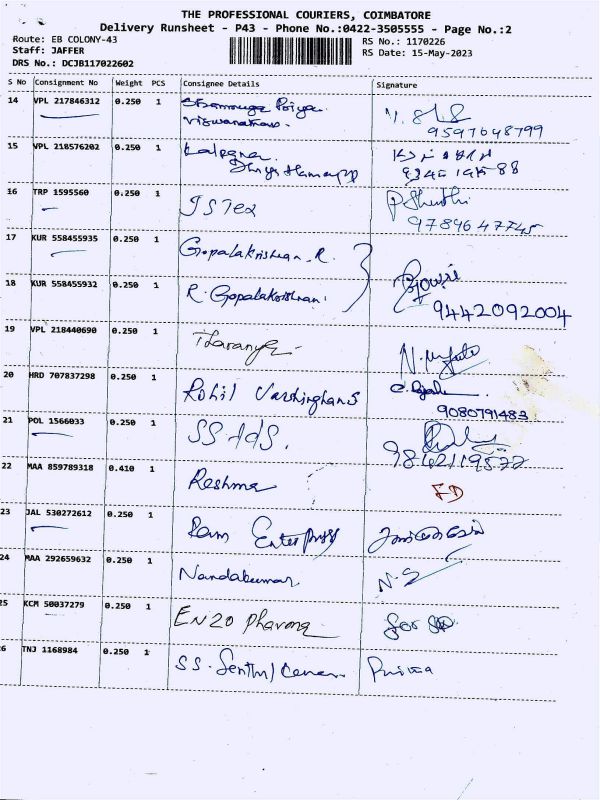 THE PROFESSIONAL COURIERS, COIMBATORE
Delivery Runsheet - P43 - Phone No.:0422-3505555 - Page No.:2
Route: EB COLONY-43
RS No.: 1170226
Staff: JAFFER
RS Date: 15-May-2023
DRS No.: DCJB117022602
S No Consignment No Weight PCS Consignee Details Signature
14 VPL 217846312 0.250 1 Priya
Viswanathan
9597648799
15 VPL 218576202 0.250 1
16 TRP 1595560 0.250 1 JS Tex P. Shanthi
9789647745
17 KUR 558455935 0.250 1 Gopalakrishnan. R.
18 KUR 558455932 0.250 1 R. Gopalakrishnan Gowri
9442092004
19 VPL 218440690 0.250 1 Tharany
20 HRD 707837298 0.250 1 Rohil Varshinghans
9080791483
21 POL 1566033 0.250 1 SS Ads.
22 MAA 859789318 0.410 1 Reshma FD
23 JAL 530272612 0.250 1 Ram
24 MAA 292659632 0.250 1 Nandakumar N.S
25 KCM 50037279 0.250 1 EN20 Pharma
26 TNJ 1168984 0.250 1 SS.